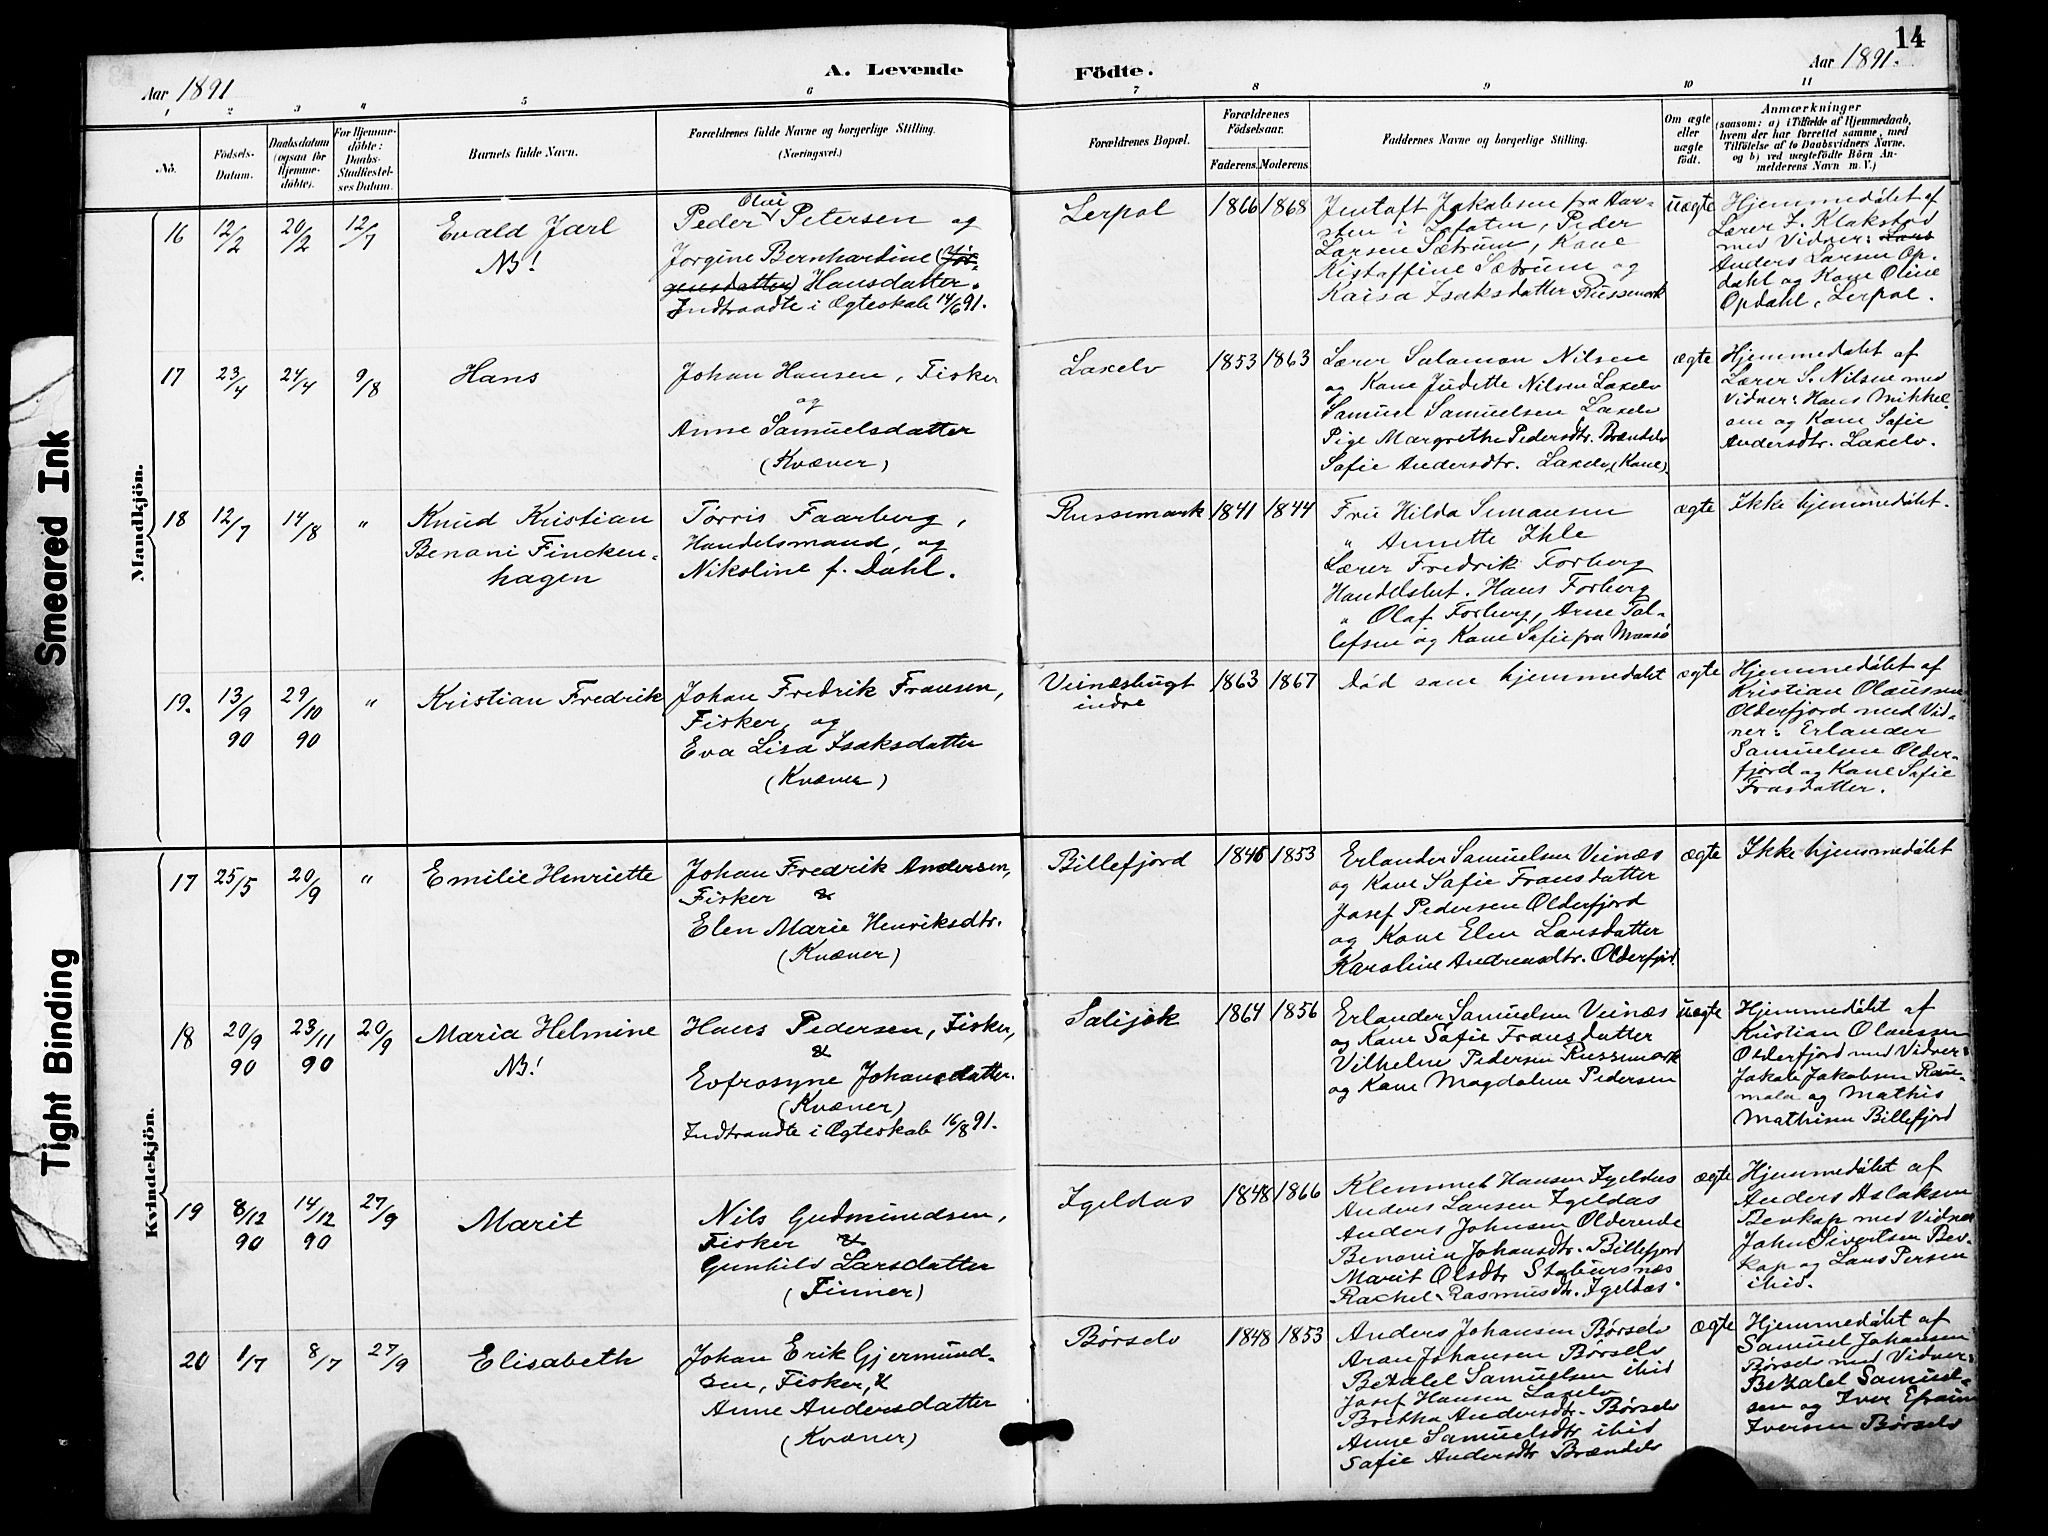 14
Aar 1891
A. Levende
Födte.
Aar 1891.
1
2
3
4
5
6
7
8
9
10
11
No.
Födsels-
Datum.
Daabsdatum
(ogsaa for
Hjemme-
döbte).
For Hjemme-
döbte:
Daabs-
Stadfæstel-
ses Datum.
Barnets fulde Navn.
Forældrenes fulde Navne og borgerlige Stilling.
(Næringsvei.)
Forældrenes Bopæl.
Forældrenes
Födselsaar.
Faderens.
Moderens.
Faddernes Navne og borgerlige Stilling.
Om ægte
eller
uægte
født.
Anmærkninger
(saasom: a) i Tilfælde af Hjemmedaab,
hvem der har forrettet samme, med
Tilföielse af to Daabsvidners Navne,
og b) ved uægtefödte Börn An-
melderens Navn m. V.)
Mandkjön.
16
12/2
20/2
12/7
Evald Jarl
NB!
Olai
Peder Petersen og
Jorgine Bernhardine (Jör-
gensdatter) Hansdatter.
Indtraadte i Ægteskab 14/6 91.
Lerpol
1866
1868
Jakobsen fra
i Lofoten, Peder
Larsen Sætrum, Kone
Kistaffine Sætrum og
Kaisa Isaksdatter Russemark
uægte
Hjemmedøbt af
Lærer J. Klakstad
med Vidner: Lars
Anders Larsen Op-
dahl og Kone Oline
Opdahl, Lerpol.
17
23/4
24/4
9/8
Hans
Johan Hansen, Fisker
og
Anne Samuelsdatter
(Kvæner)
Laxelv
1853
1863
Lærer Salamon Nilsen
og Kone Judette Nilsen Laxelv
Samuel Samuelsen Laxelv
Pige Margrethe Pedersdtr. Brændelv
Safie Andersdtr. Laxelv (Kone)
ægte
Hjemmedøbt af
Lærer S. Nilsen med
Vidner: Hans Mikkel-
sen og Kone Safie
Andersdtr. Laxelv.
18
12/7
14/8
"
Knud Kristian
Benoni Fincken-
hagen
Tørris Faarberg,
Handelsmand, og
Nikoline f. Dahl.
Russemark
1841
1844
Fru Hilda Simonsen
" Annette Ihle
Lærer Fredrik Forberg
Handelsbet. Hans Forberg
" Olaf Forberg, Arne Tol-
lefsen og Kone Safie fra Maasø
ægte
Ikke hjemmedøbt.
19.
13/9
90
29/10
90
"
Kristian Fredrik
Johan Fredrik Fransen,
Fisker, og
Eva Lisa Isaksdatter
(Kvæner)
Veinæsbugt
indre
1863
1867
Død som hjemmedøbt
ægte
Hjemmedøbt af
Kristian Olaussen
Olderfjord med Vid-
ner: Erlander
Samuelsen Older-
fjord og Kone Safie
Fransdatter.
Kvindekjön.
17
25/5
20/9
"
Emilie Henriette
Johan Fredrik Andersen,
Fisker &
Elen Marie Henriksdtr.
(Kvæner)
Billefjord
1846
1853
Erlander Samuelsen Veinæs
og Kone Safie Fransdatter
Josef Pedersen Olderfjord
og Kone Elen Larsdatter
Karoline Andreasdtr. Olderfjord.
ægte
Ikke hjemmedøbt
18
20/9
90
23/11
90
20/9
Maria Helmine
NB!
Hans Pedersen, Fisker,
&
Evfrosyne Johansdatter.
(Kvæner)
Indtraadte i Ægteskab 16/8 91.
Salijok
1864
1856
Erlander Samuelsen Veinæs
og Kone Safie Fransdatter
Vilhelm Pedersen Russemark
og Kone Magdalene Pedersen
uægte
Hjemmedøbt af
Kristian Olaussen
Olderfjord med Vidner:
Jakob Jakobsen
og Mathis
Mathisen Billefjord
19
8/12
90
14/12
90
27/9
Marit
Nils Gudmundsen,
Fisker &
Gunhild Larsdatter
(Finner)
Igeldas
1848
1866
Klemmet Hansen Igeldas
Anders Larsen Igeldas
Anders Johnsen Olderende
Benonie Johansdtr. Billefjord
Marit Olsdtr Stabursnæs
Rachel Rasmusdtr. Igeldas.
ægte
Hjemmedøbt af
Anders Aslaksen
Bevkop med Vidner
John Sivertsen Bev-
kop og Lars Persen
ibid.
20
1/7
8/7
27/9
Elisabeth
Johan Erik Gjermund-
sen, Fisker, &
Anne Andersdatter
(Kvæner)
Børselv
1848
1853
Anders Johansen Børselv
Aron Johansen Børselv
Bezalel Samuelsen ibid
Josef Hansen Laxelv
Britha Andersdtr. Børselv
Anne Samuelsdtr ibid
Safie Andersdtr Brændelv
ægte
Hjemmedøbt af
Samuel Johansen
Børselv med Vidner:
Bezalel Samuel-
sen og Iver Efraim
Iversen Børselv
Smeared Ink
Tight Binding